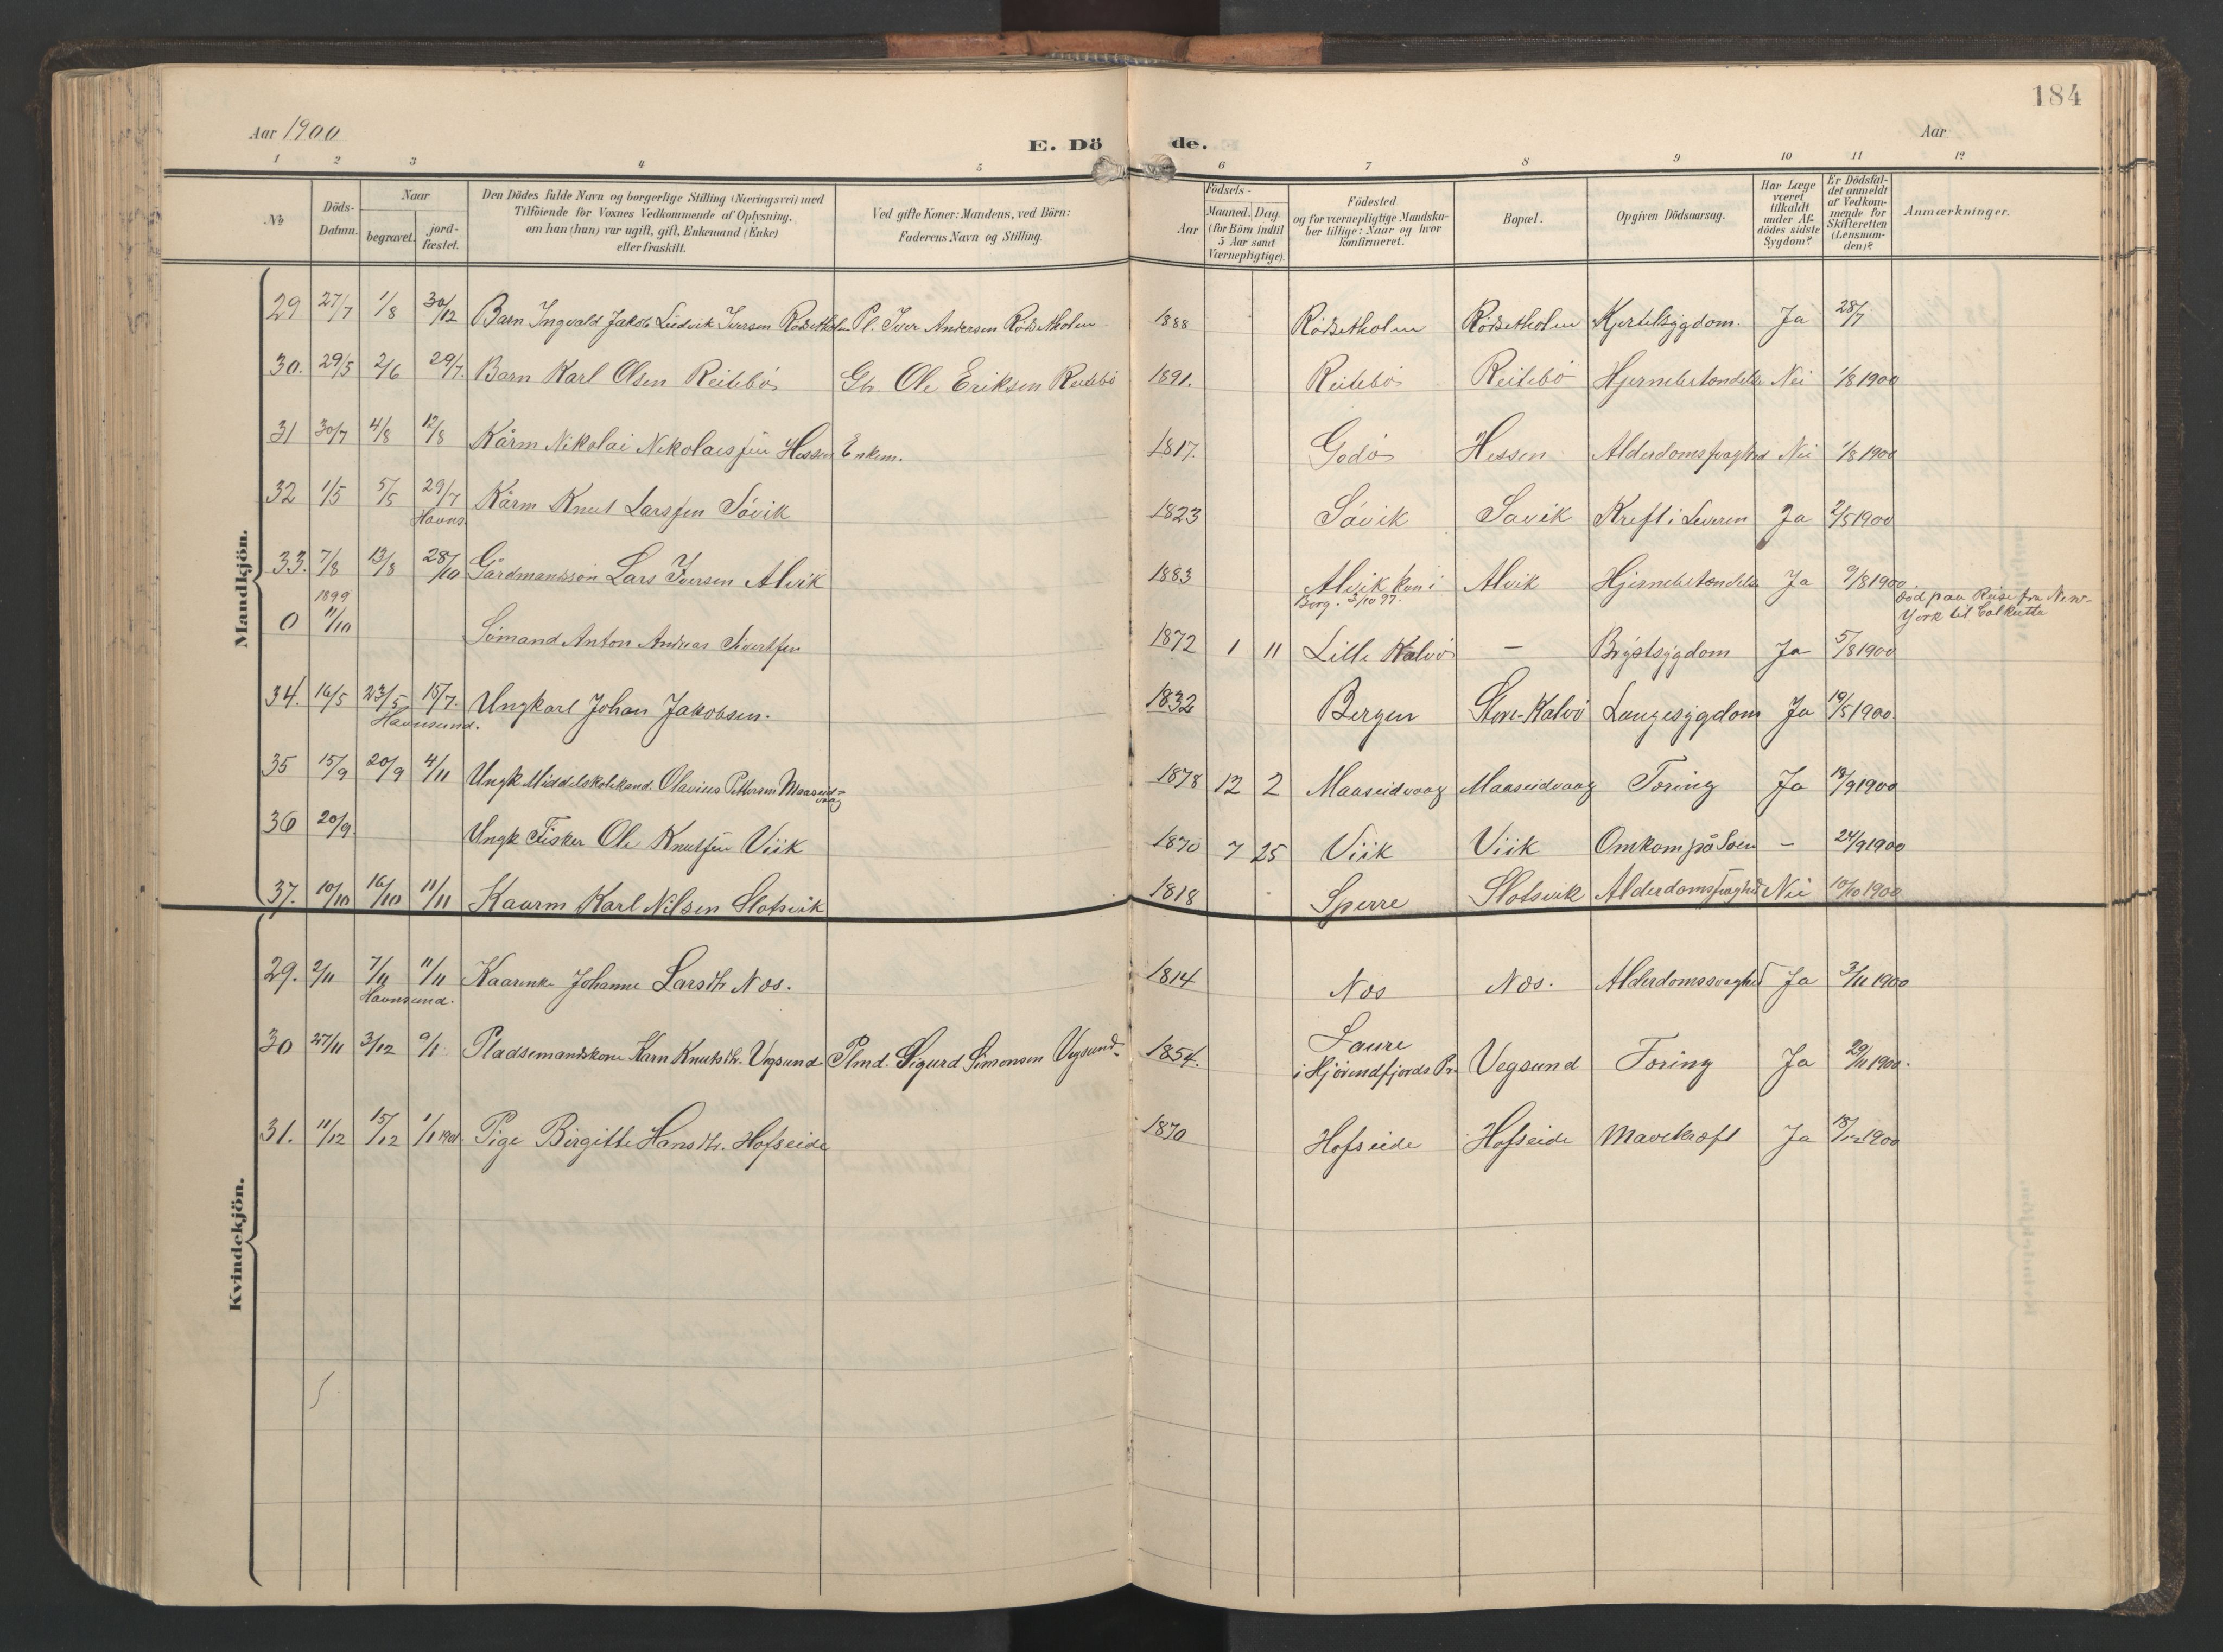 184
Aar 1900
E. Dö de.
Aar
1 2 3 4 5 6 7 8 9 10 11 12
№
Döds-Datum.
Naar
begravet.
jord-fæstet.
Den Dödes fulde Navn og borgerlige Stilling (Næringsvei) med
Tilföiende for Voxnes Vedkommende af Oplysning,
om han (hun) var ugift, gift, Enkemand (Enke)
eller fraskilt.
Ved gifte Koner: Mandens, ved Börn:
Faderens Navn og Stilling.
Födsels-
Aar
Maaned. Dag.
(for Börn indtil
5 Aar samt
Værnepligtige).
Födested
og for værnepligtige Mandska-
ber tillige: Naar og hvor
konfirmeret.
Bopæl.
Opgiven Dödsaarsag.
Har Læge
været
tilkaldt
under Af-
dödes sidste
Sygdom?
Er Dödsfal-
det anmeldt
af Vedkom-
mende for
Skifteretten
(Lensman-
den)?
Anmærkninger.
Mandkjön.
29 27/7 1/8 30/12 Barn Ingvald Jakob Ludvik Iversen Rödsetholm Pl. Iver Andersen Rödsetholm 1888 Rödsetholm Rödsetholm Kjertelsygdom. Ja 28/7
30. 29/5 2/6 29/7. Barn Karl Olsen Reitebö Gbr. Ole Eriksen Reitebö 1891. Reitebö Reitebö Hjernebetændelse Nei 1/8 1900
31 30/7 4/8 12/8 Kårm Nikolai Nikolaisen Hessen Enkem. 1817. Godö Hessen Alderdomssvaghed Nei 1/8 1900
32 1/5 5/5 29/7 Kårm Knut Larssen Sövik 1823 Sövik Sövik Kreft i Leveren Ja 2/5 1900
Havns.
33. 7/8 13/8 28/10 Gårdmandssön Lars Iversen Alvik 1883 Alvik kon i Alvik Hjernebetændelse Ja 9/8 1900
Borg. 3/10 97.
1899
0 11/10 Sömand Anton Andreas Sivertsen 1872 1 11 Lille Kalvö — Brystsygdom Ja 5/8 1900 Död paa Reise fra New-
York til Calkutta
34. 16/5 23/5 15/7. Ungkarl Johan Jakobsen. 1832 Bergen Store-Kalvö Lungesygdom Ja 19/5 1900
Havnsund.
35 15/9 20/9 4/11 Ungk Middelskolekand. Olavius Pettersen Maaseid-
vaag 1878 12 2 Maaseidvaag Maaseidvaag Tæring Ja 18/9 1900
36 20/9. Ungk Fisker Ole Knutsen Viik 1870 7 25 Viik Viik Omkom på Söen - 24/9 1900
37. 10/10 16/10 11/11 Kaarm Karl Nilsen Slotsvik 1818 Sperre Slotsvik Alderdomssvaghed Nei 10/10 1900
Kvindekjön.
29. 2/11 7/11 11/11 Kaarenke Johanne Larsdtr Næs. 1814 Næs Næs. Alderdomssvaghed Ja 3/11 1900
Havnsund.
30 27/11 3/12 9/1 Pladsemandskone Karn Knutsdtr. Vegsund Plmd. Sigurd Simonsen Vegsund 1854. Saure
i Hjörendfjords Pr. Vegsund Tæring Ja 29/11 1900.
31. 11/12 15/12 1/1 1901. Pige Birgitte Hansdtr. Hofseide 1870 Hofseide Hofseide Mavekræft Ja 18/12 1900